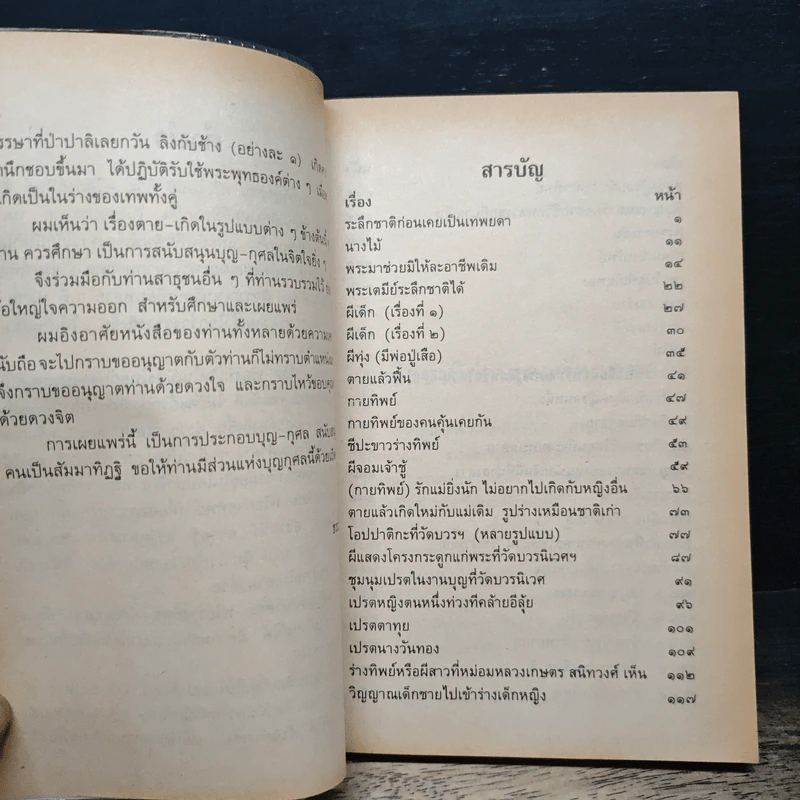 รรษาที่ป่าปาลิเลยกวัน ลิงกับช้าง (อย่างละ ๑)
นึกชอบขึ้นมา ได้ปฏิบัติรับใช้พระพุทธองค์ต่าง ๆ
เกิดเป็นในร่างของเทพทั้งคู่
ผมเห็นว่า เรื่องตาย-เกิดในรูปแบบต่าง ๆ ข้างต้นนี้
าน ควรศึกษา เป็นการสนับสนุนบุญ-กุศลในจิตใจยิ่ง ๆ
จึงร่วมมือกับท่านสาธุชนอื่น ๆ ที่ท่านรวบรวมไว้
อใหญ่ใจความออก สำหรับศึกษาและเผยแพร่
ผมอิงอาศัยหนังสือของท่านทั้งหลายด้วยความ
นับถือ จะไปกราบขออนุญาตกับตัวท่านก็ไม่ทราบตำแหน่ง
จึงกราบขออนุญาตท่านด้วยดวงใจ และกราบไหว้ขอบคุณ
ด้วยดวงจิต
การเผยแพร่นี้ เป็นการประกอบบุญ-กุศล
คนเป็นสัมมาทิฏฐิ ขอให้ท่านมีส่วนแห่งบุญกุศลนี้ด้วย
สารบัญ
เรื่อง หน้า
ระลึกชาติก่อนเคยเป็นเทพยดา ๑
นางไม้ ๑๑
พระมาช่วยมิให้ละอาชีพเดิม ๑๔
พระเตมีย์ระลึกชาติได้ ๒๒
ผีเด็ก (เรื่องที่ ๑) ๒๗
ผีเด็ก (เรื่องที่ ๒) ๓๐
ผีทุ่ง (มีพ่อปู่เสือ) ๓๕
ตายแล้วฟื้น ๔๑
กายทิพย์ ๔๗
กายทิพย์ของคนคุ้นเคยกัน ๔๙
ชีปะขาวร่างทิพย์ ๕๓
ผีจอมเจ้าชู้ ๕๙
(กายทิพย์) รักแม่ยิ่งนัก ไม่อยากไปเกิดกับหญิงอื่น ๖๖
ตายแล้วเกิดใหม่กับแม่เดิม รูปร่างเหมือนชาติเก่า ๗๓
โอปปาติกะที่วัดบวรฯ (หลายรูปแบบ) ๗๗
ผีแสดงโครงกระดูกแก่พระที่วัดบวรนิเวศฯ ๘๗
ชุมนุมเปรตในงานบุญที่วัดบวรนิเวศ ๙๑
เปรตหญิงตนหนึ่งท่วงทีคล้ายอีลุ้ย ๙๖
เปรตตาทุย ๑๐๑
เปรตนางวันทอง ๑๐๙
ร่างทิพย์หรือผีสาวที่หม่อมหลวงเกษตร สนิทวงศ์ เห็น ๑๑๒
วิญญาณเด็กชายไปเข้าร่างเด็กหญิง ๑๑๗